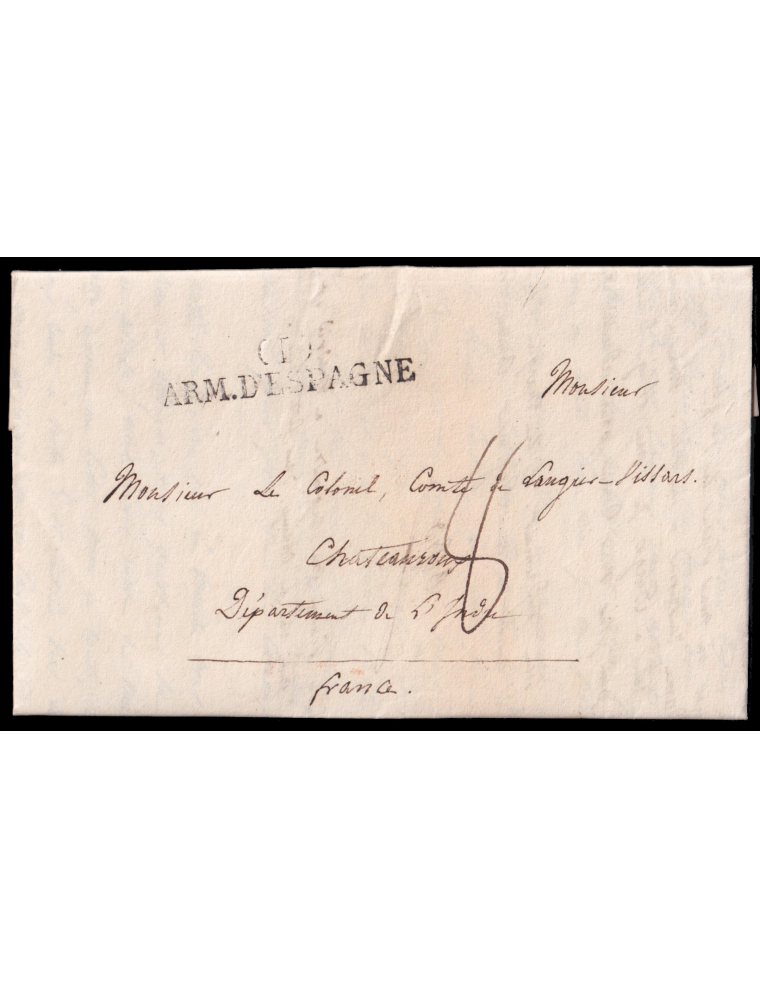 (L)
ARM.D'ESPAGNE
Monsieur
Monsieur Le Colonel, Comte de Laugier-Villars.
Chateauroux
Département de L'Indre
france.